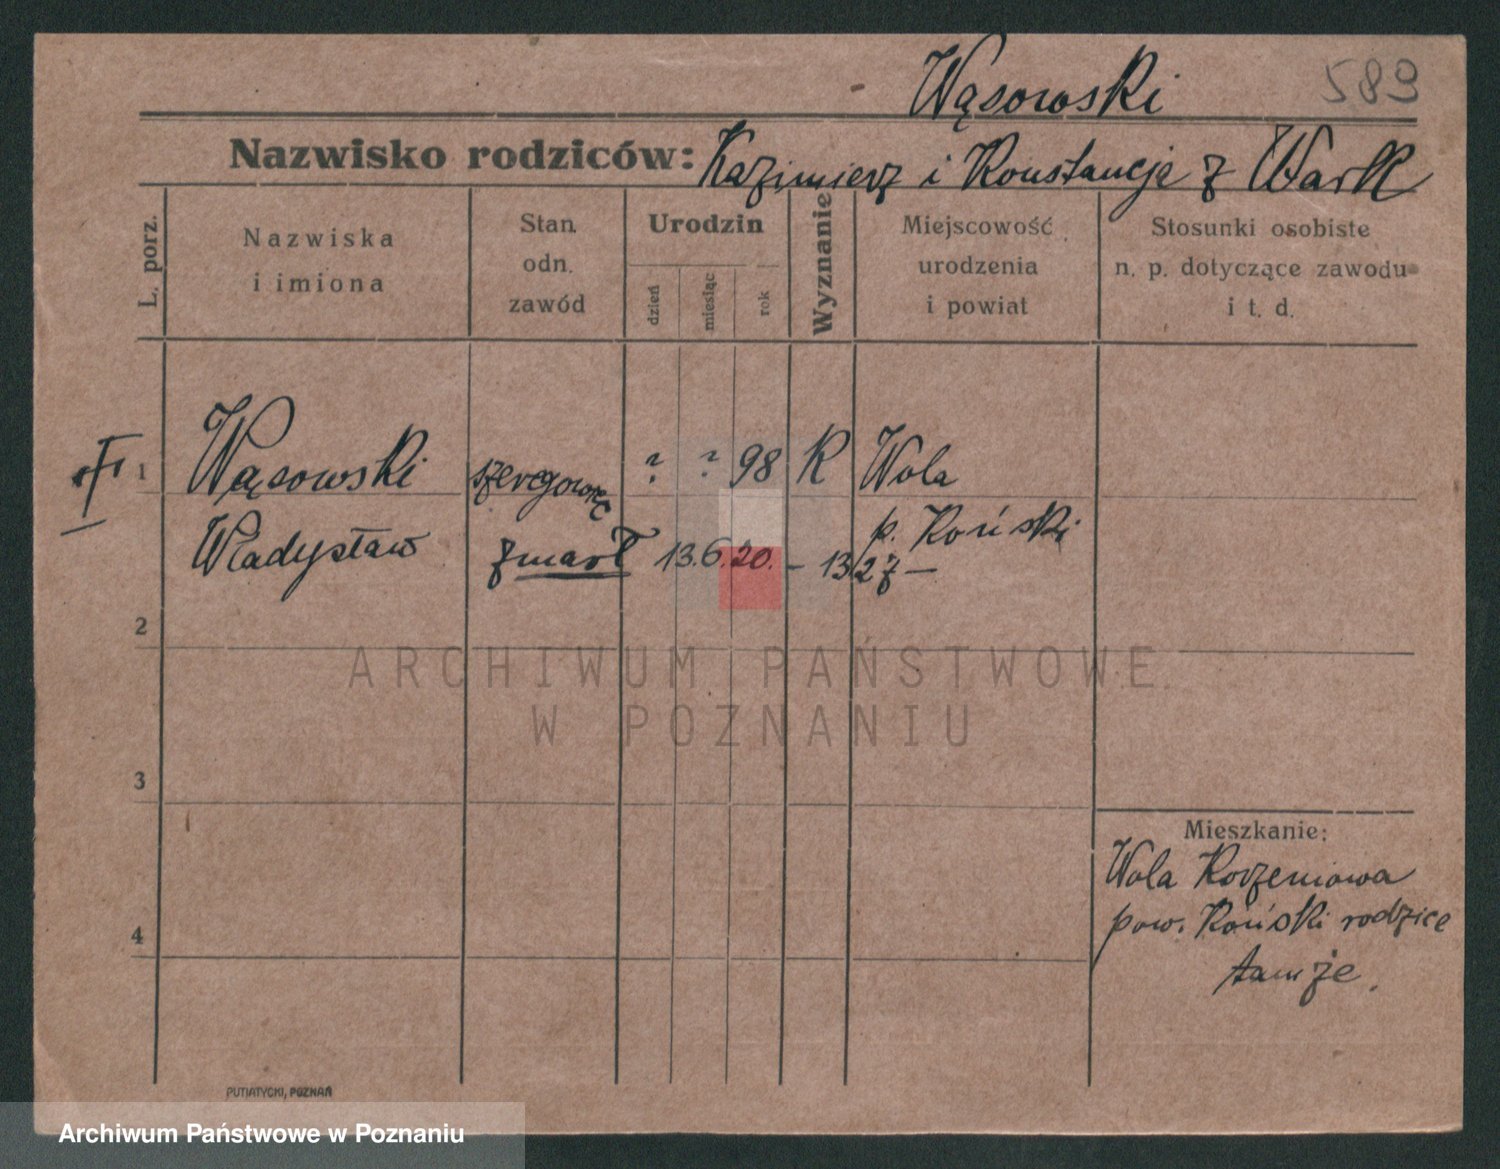 Wąsowski 589
Nazwisko rodziców: Kazimierz i Konstancja z Wark
L. porz.
Nazwiska
i imiona
Stan.
odn.
zawód
Urodzin
dzień
miesiąc
rok
Wyznanie
Miejscowość
urodzenia
i powiat
Stosunki osobiste
n. p. dotyczące zawodu
i t. d.
1 Wąsowski szeregowiec ? ? 98 R Wola
p. Koński
Władysław zmarł 13.6.20. – 13/27 –
2
3
4
Mieszkanie:
Wola Korzeniowa
pow. Koński rodzice
tamże.
PUTIATYCKI, POZNAŃ
ARCHIWUM PAŃSTWOWE
W POZNANIU
Archiwum Państwowe w Poznaniu